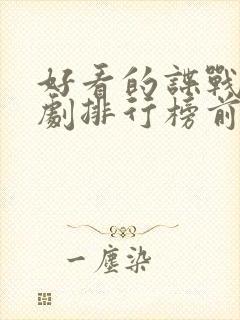 好看的諜戰
劇排行榜前
一塵染